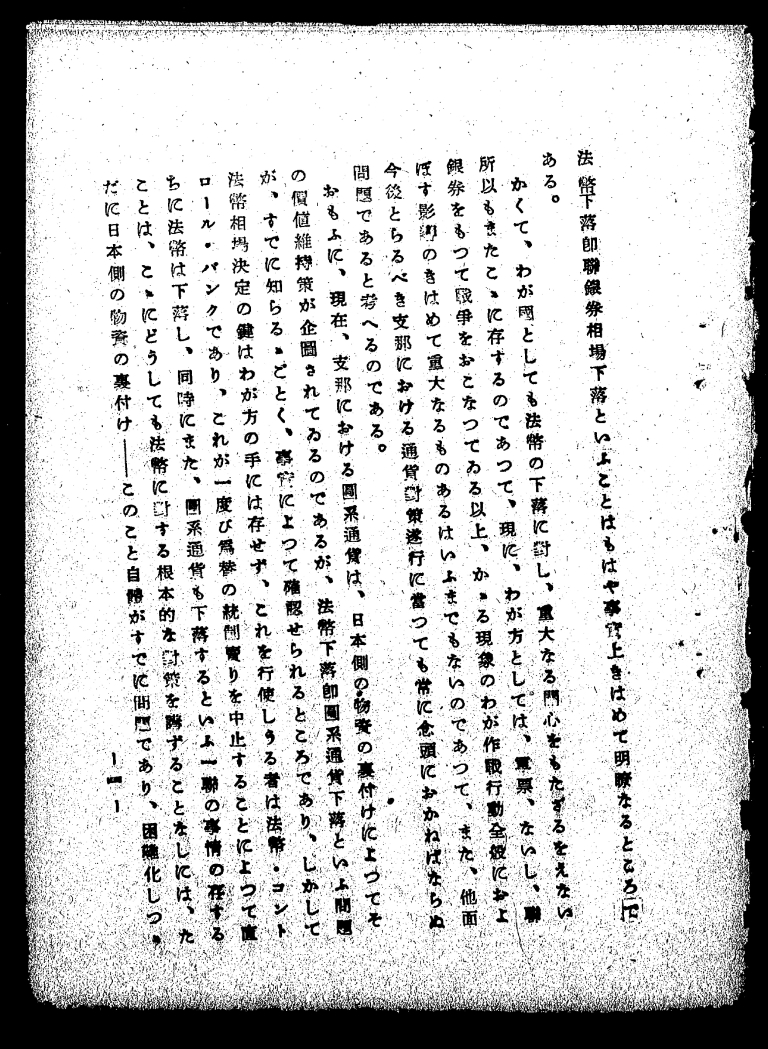 法幣下落卽聯銀券相場下落といふことはもはや事實上きはめて明瞭なるところで
ある。
かくて、わが國としても法幣の下落に對し、重大なる關心をもたざるをえない
所以もまたこゝに存するのであつて、現に、わが方としては、軍票、ないし、聯
銀券をもつて戰爭をおこなつてゐる以上、かゝる現象のわが作戰行動全般におよ
ぼす影響のきはめて重大なるものあるはいふまでもないのであつて、また、他面
今後とらるべき支那における通貨對策遂行に當つても常に念頭におかねばならぬ
問題であると考へるのである。
おもふに、現在、支那における圓系通貨は、日本側の物資の裏付けによつてそ
の價値維持策が企圖されてゐるのであるが、法幣下落卽圓系通貨下落といふ問題
が、すでに知らるゝごとく、事實によつて確認せられるところであり、しかして
法幣相場決定の鍵はわが方の手には存せず、これを行使しうる者は法幣・コント
ロール・バンクであり、これが一度び爲替の統制賣りを中止することによつて直
ちに法幣は下落し、同時にまた、圓系通貨も下落するといふ一聯の事情の存する
ことは、こゝにどうしても法幣に對する根本的な對策を講ずることなしには、た
だに日本側の物資の裏付け——このこと自體がすでに問題であり、困難化しつゝ